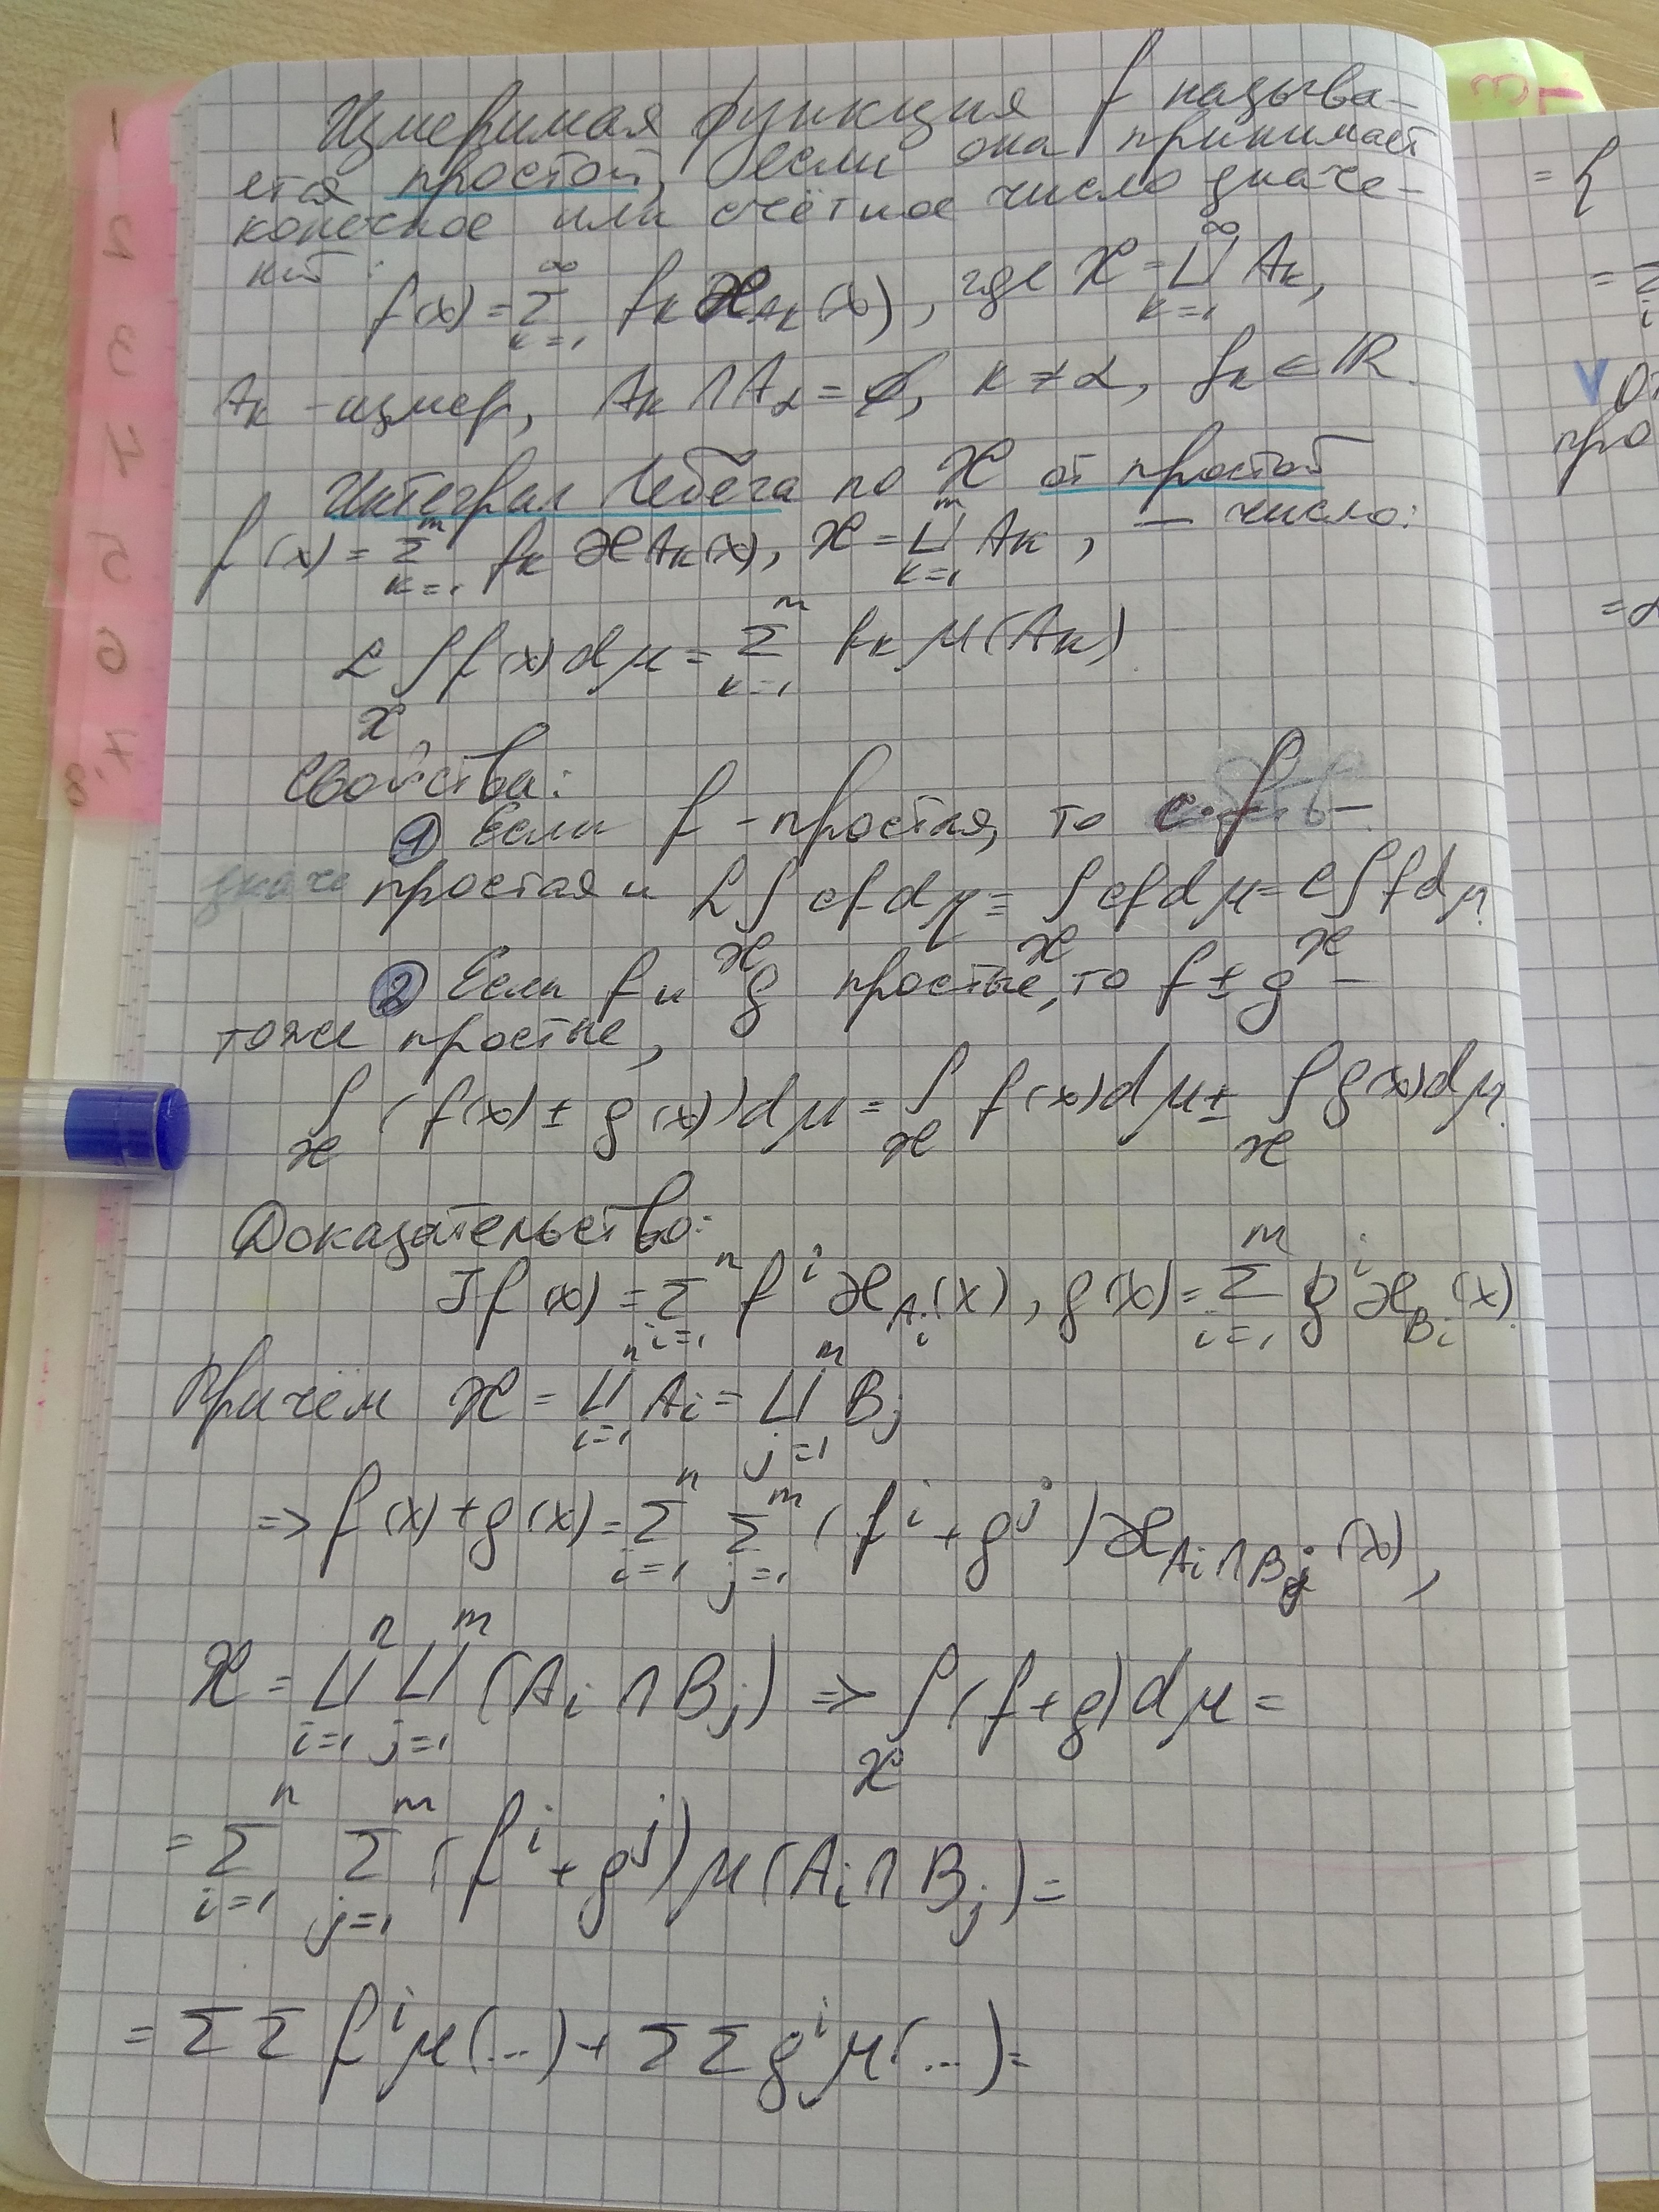 Измеримая функция f называ-
ется простой, если она принимает
конечное или счётное число значе-
ний:
f(x) = Σ_{k=1}^{∞} f_k χ_{A_k}(x), где X = ⊔_{k=1}^{∞} A_k,
A_k – измер, A_k ∩ A_α = ∅, k ≠ α, f_k ∈ ℝ.
Интеграл Лебега по X от простой
f(x) = Σ_{k=1}^{m} f_k χ_{A_k}(x), X = ⊔_{k=1}^{m} A_k, — число:
L ∫_X f(x)dμ = Σ_{k=1}^{m} f_k μ(A_k)
Свойства:
① Если f – простая, то c·f –
простая и L∫_X cf dμ = ∫_X cf dμ = c∫_X f dμ.
② Если f и g простые, то f ± g –
тоже простые,
∫_X (f(x) ± g(x))dμ = ∫_X f(x)dμ ± ∫_X g(x)dμ.
Доказательство:
] f(x) = Σ_{i=1}^{n} f^i χ_{A_i}(x), g(x) = Σ_{i=1}^{m} g^i χ_{B_i}(x).
Причём X = ⊔_{i=1}^{n} A_i = ⊔_{j=1}^{m} B_j
=> f(x) + g(x) = Σ_{i=1}^{n} Σ_{j=1}^{m} (f^i + g^j) χ_{A_i ∩ B_j}(x),
X = ⊔_{i=1}^{n} ⊔_{j=1}^{m} (A_i ∩ B_j) => ∫_X (f+g)dμ =
= Σ_{i=1}^{n} Σ_{j=1}^{m} (f^i + g^j) μ(A_i ∩ B_j) =
= Σ Σ f^i μ(...) + Σ Σ g^i μ(...) =
= {
=
V
про
=